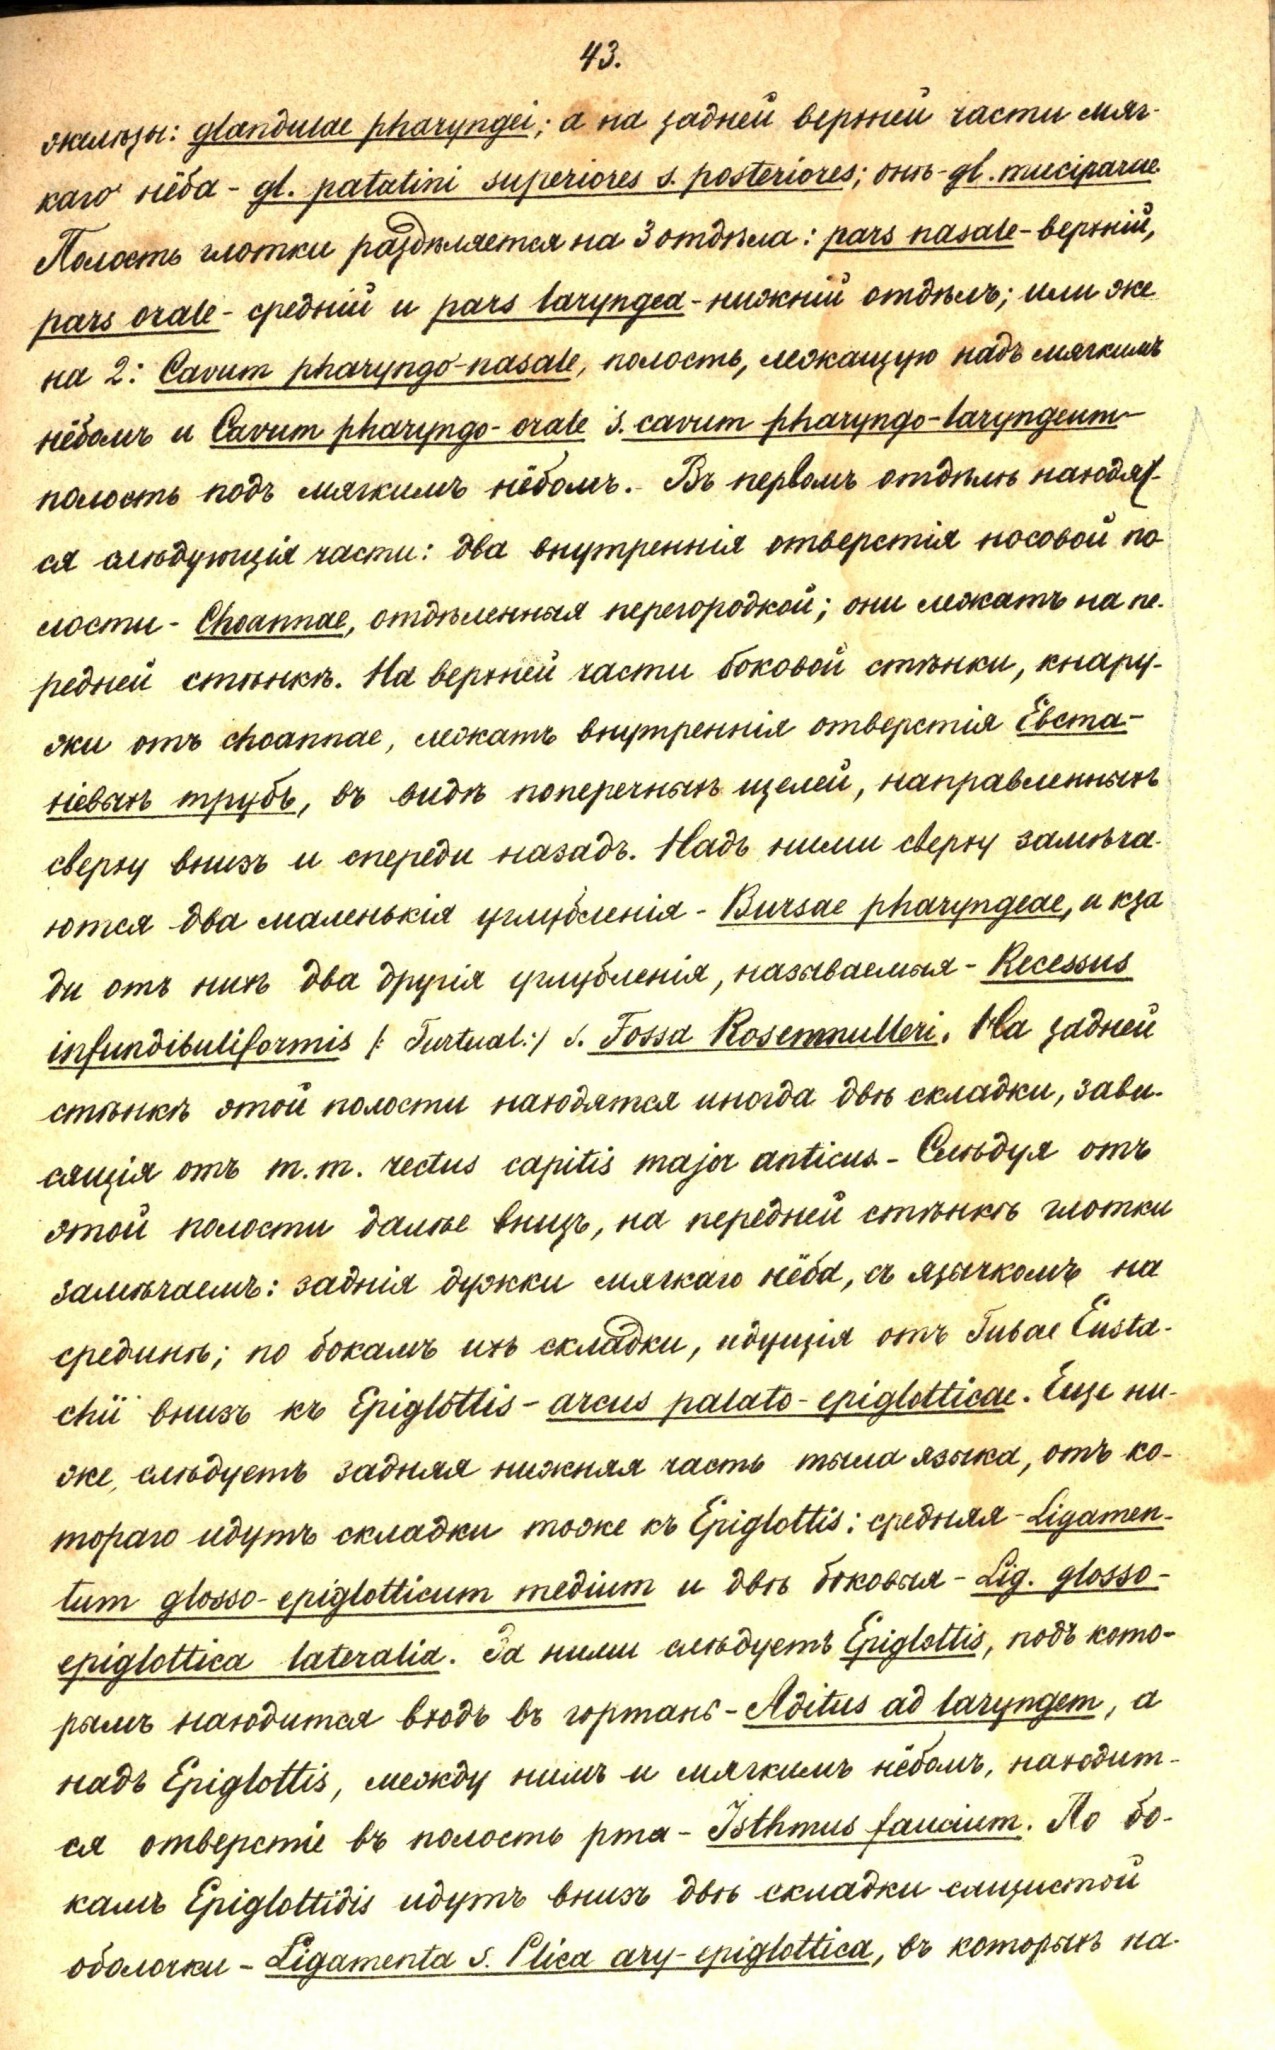 43.
железы: glandulae pharyngei; а на задней верхней части мяг-
каго нёба - gl. palatini superiores s. posteriores; онѣ - gl. muciparae.
Полость глотки раздѣляется на 3 отдѣла: pars nasale - верхній,
pars orale - средній и pars laryngea - нижній отдѣлъ; или же
на 2: Cavum pharyngo-nasale, полость, лежащую надъ мягкимъ
нёбомъ и Cavum pharyngo-orale s. cavum pharyngo-laryngeum -
полость подъ мягкимъ нёбомъ. - Въ первомъ отдѣлѣ находят-
ся слѣдующія части: два внутреннія отверстія носовой по-
лости - Choannae, отдѣленныя перегородкой; они лежатъ на пе-
редней стѣнкѣ. На верхней части боковой стѣнки, кнару-
жи отъ choannae, лежатъ внутреннія отверстія Евста-
хіевыхъ трубъ, въ видѣ поперечныхъ щелей, направленныхъ
сверху внизъ и спереди назадъ. Надъ ними сверху замѣча-
ются два маленькія углубленія - Bursae pharyngeae, и кза
ди отъ нихъ два другія углубленія, называемыя - Recessus
infundibuliformis /: Turtual :/ s. Fossa Rosenmulleri. На задней
стѣнкѣ этой полости находятся иногда двѣ складки, зави-
сящія отъ m. m. rectus capitis major anticus. - Слѣдуя отъ
этой полости далѣе внизъ, на передней стѣнкѣ глотки
замѣчаемъ: заднія дужки мягкаго нёба, съ язычкомъ на
срединѣ; по бокамъ ихъ складки, идущія отъ Tubae Eusta-
chii внизъ къ Epiglottis - arcus palato-epiglotticae. Еще ни-
же, слѣдуетъ задняя нижняя часть тыла языка, отъ ко-
тораго идутъ складки тоже къ Epiglottis: средняя - Ligamen-
tum glosso-epiglotticum medium и двѣ боковыя - Lig. glosso-
epiglottica lateralia. За ними слѣдуетъ Epiglottis, подъ кото-
рымъ находится входъ въ гортань - Aditus ad laryngem, а
надъ Epiglottis, между нимъ и мягкимъ нёбомъ, находит-
ся отверстіе въ полость рта - Isthmus faucium. По бо-
камъ Epiglottidis идутъ внизъ двѣ складки слизистой
оболочки - Ligamenta s. Plica ary-epiglottica, въ которыхъ на-